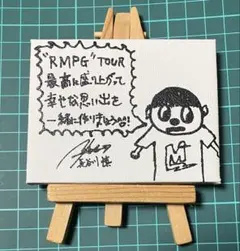 "RMPG" TOUR
最高に盛り上がって
幸せな思い出を
一緒に作りましょう!!
長谷川慎
M